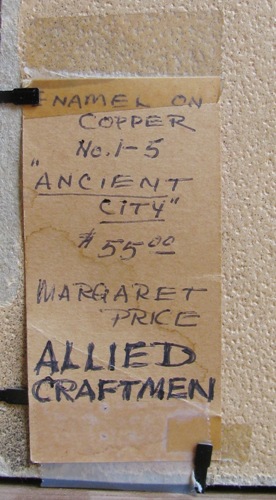 ENAMEL ON
COPPER
No. 1-5
"ANCIENT
CITY"
$55.00
MARGARET
PRICE
ALLIED
CRAFTMEN